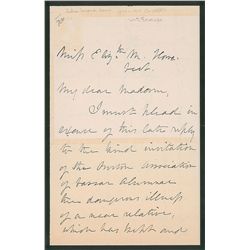 Miss Eliz^th M. Howe
My dear Madam,
I must plead in
excuse of this late reply
to the kind invitation
of the Boston association
of Vassar Alumnae
the dangerous illness
of a near relative,
which has kept and